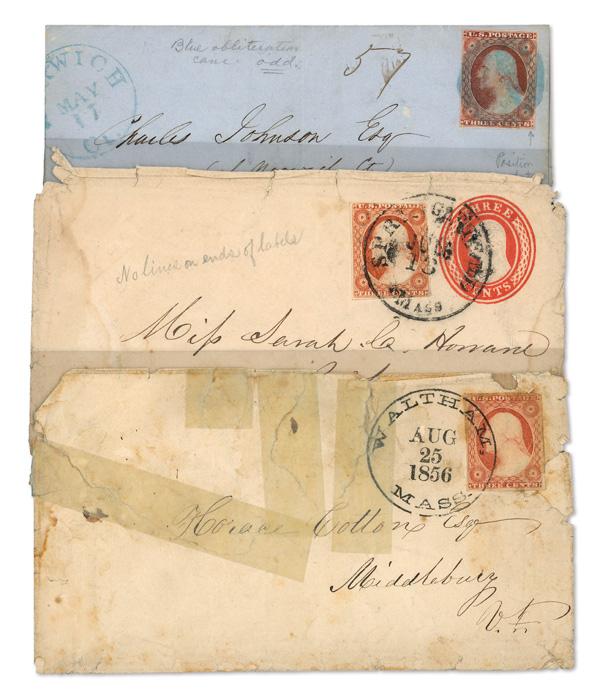 U.S. POSTAGE
THREE CENTS
Blue obliteration
canc. odd.
57
WICH
MAY
11
Charles Johnson Esq
Position
THREE
CENTS
U.S. POSTAGE
THREE CENTS
SPRINGFIELD
15
MASS
No lines on ends of labels
Miſs Sarah C. Howard
WALTHAM.
AUG
25
1856
MASS.
U.S. POSTAGE
THREE CENTS
Horace Cottons Esq
Middlebury
Vt.